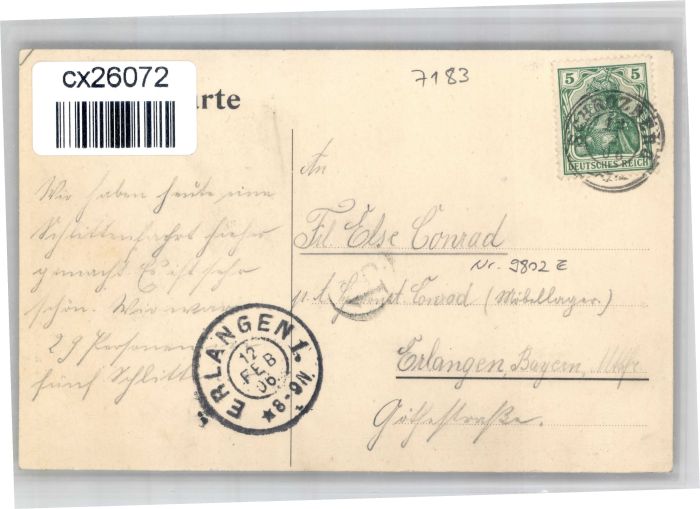 cx26072
rte
7183
5 5
DEUTSCHES REICH
An
Frl. Else Conrad
Nr. 9802 E
Conrad (Möbellager.)
Erlangen, Bayern,
Göthestraße.
Wir haben heute eine
Schlittenfahrt hieher
gemacht. Es ist sehr
schön. Wir war
29 Personen
fünf Schlitt
ERLANGEN 1.
12
FEB
06
8-9N.